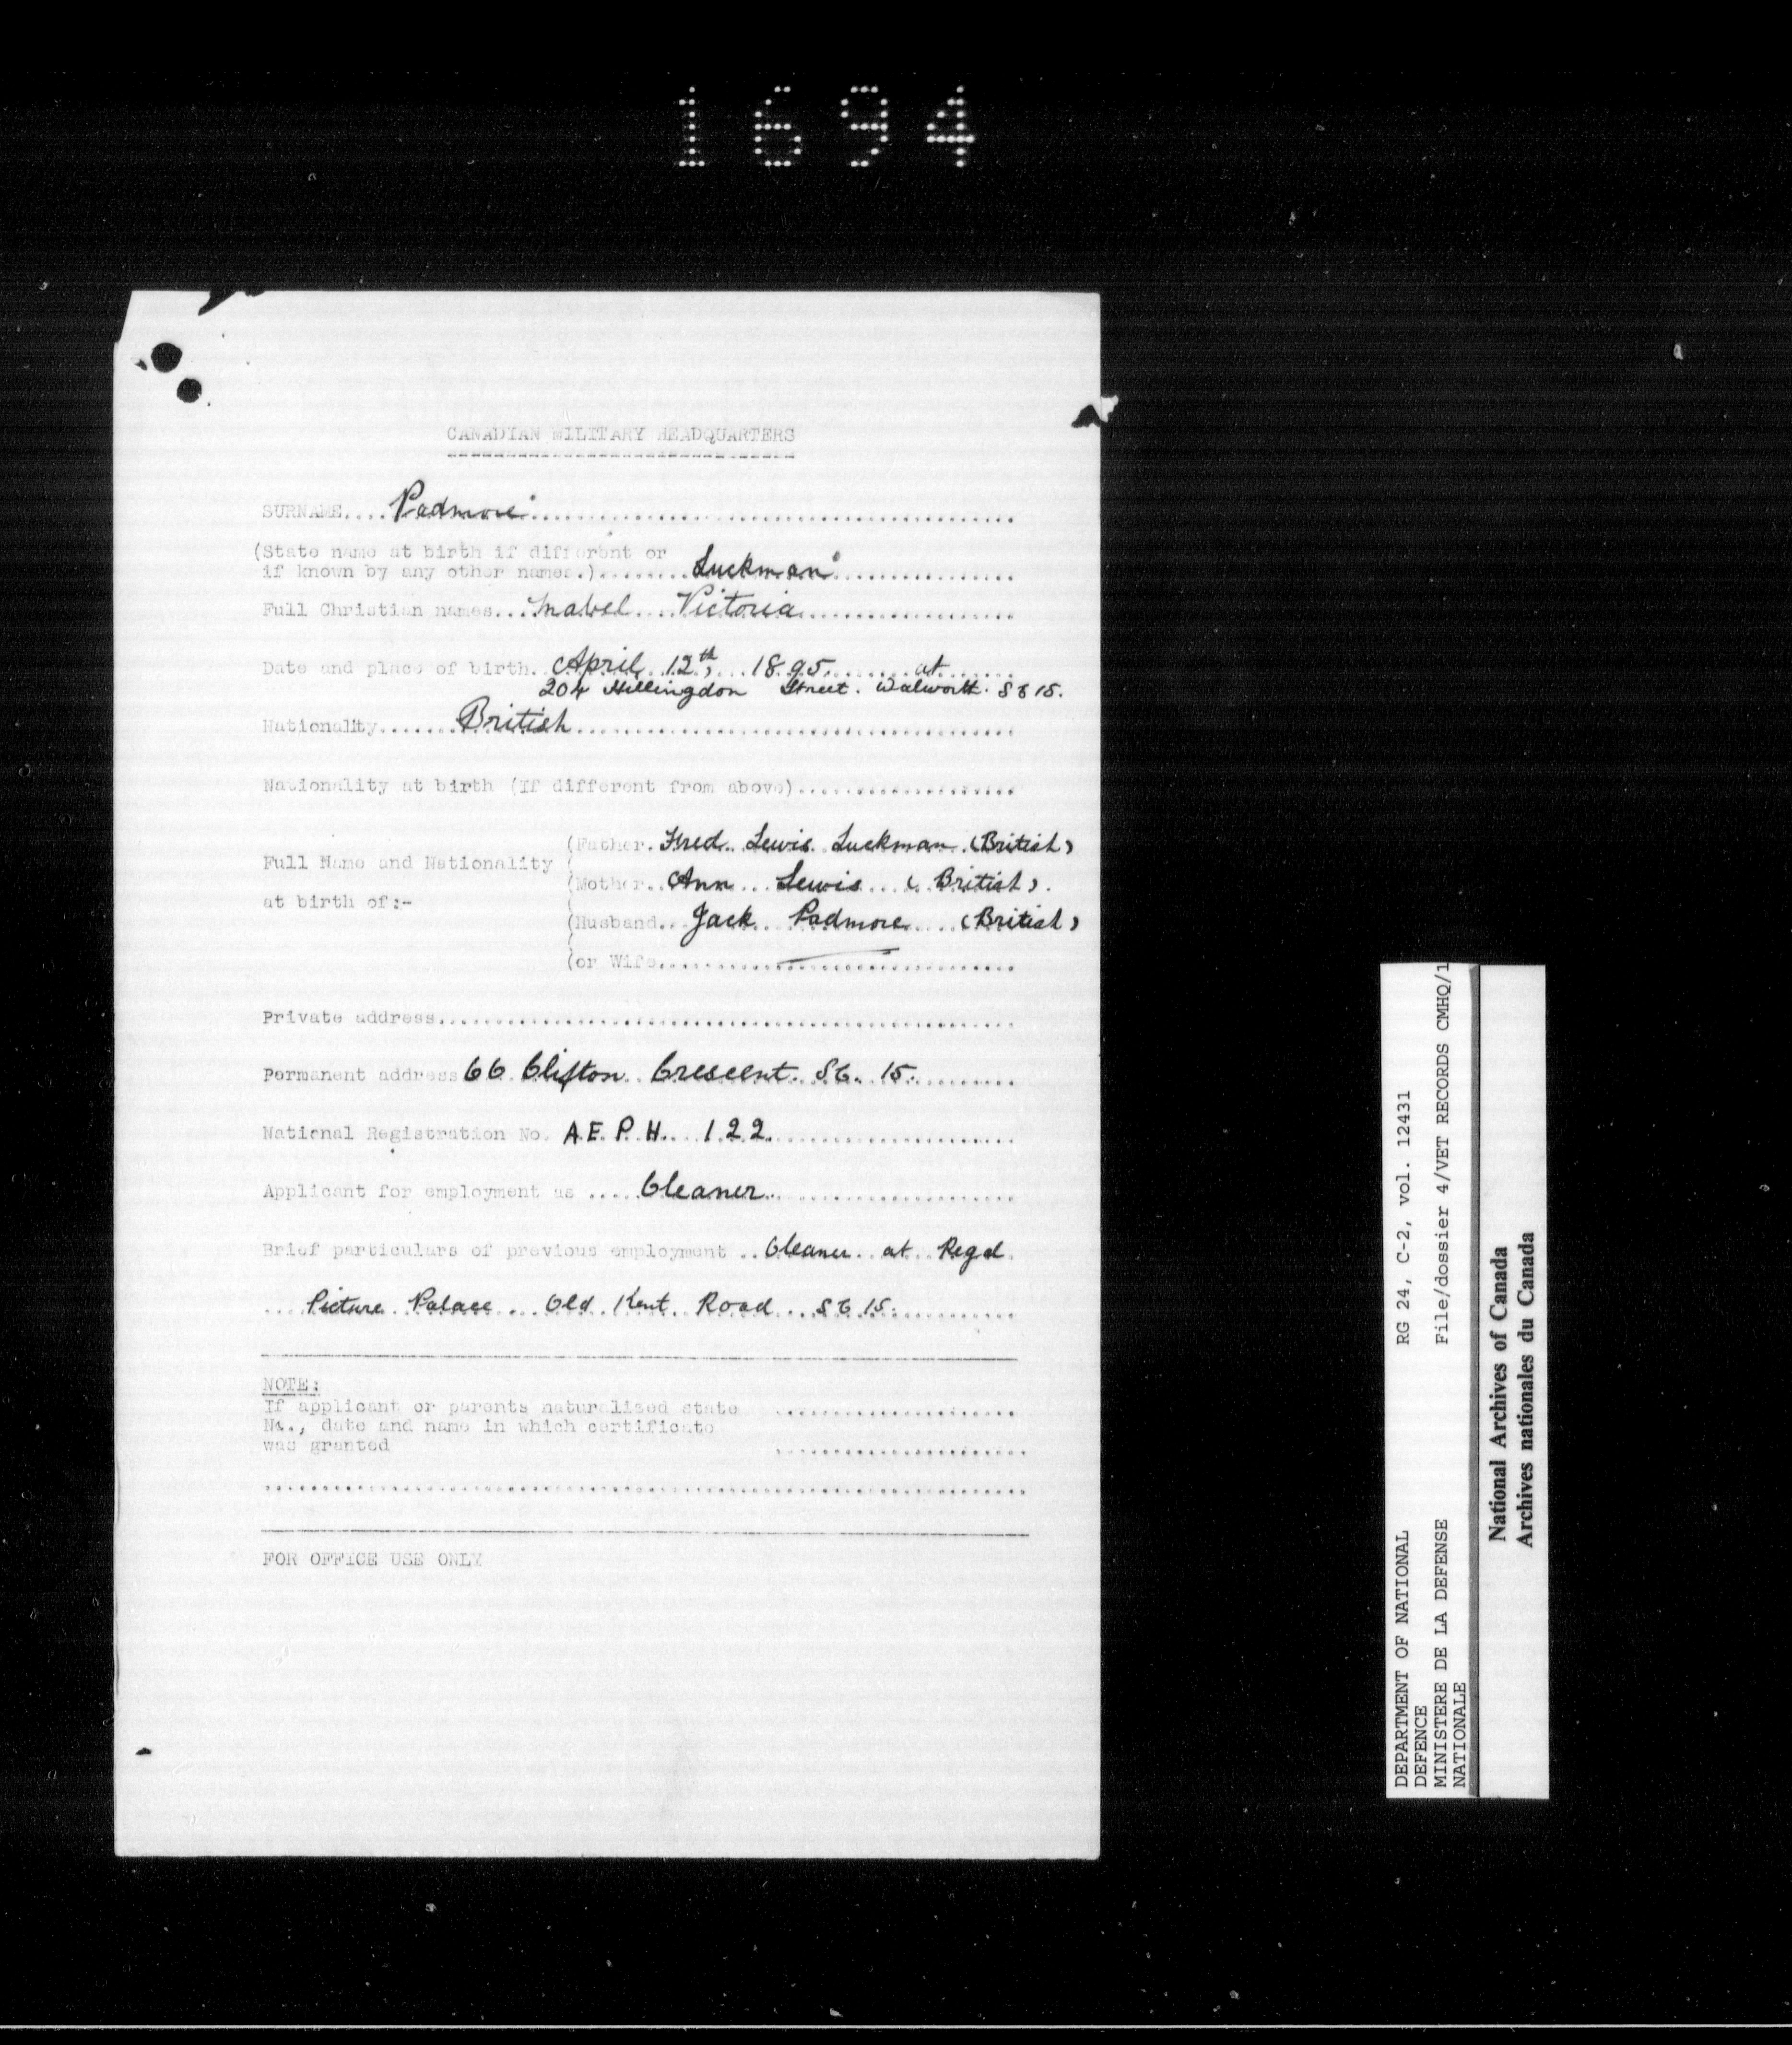 1694
CANADIAN MILITARY HEADQUARTERS
SURNAME.... Padmore
(State name at birth if different or
if known by any other names.)........ Luckman
Full Christian names... Mabel Victoria
Date and place of birth. April 12th, 1895 at
204 Hillingdon Street. Walworth. SE 15.
Nationality....... British
Nationality at birth (If different from above)....................
(Father. Fred Lewis Luckman (British)
Full Name and Nationality (
(Mother.. Ann Lewis (British).
at birth of:- (
(Husband... Jack Padmore (British)
(
(or Wife................................
Private address..................................................
Permanent address 66 Clifton Crescent. SE. 15.
National Registration No. A.E.P.H. 122
Applicant for employment as .... Cleaner
Brief particulars of previous employment .. Cleaner at Regal
.... Picture Palace. Old Kent Road. SE 15.
NOTE:
If applicant or parents naturalized state
No., date and name in which certificate
was granted
FOR OFFICE USE ONLY
DEPARTMENT OF NATIONAL RG 24, C-2, vol. 12431
DEFENCE
MINISTERE DE LA DEFENSE File/dossier 4/VET RECORDS CMHQ/1
NATIONALE
National Archives of Canada
Archives nationales du Canada